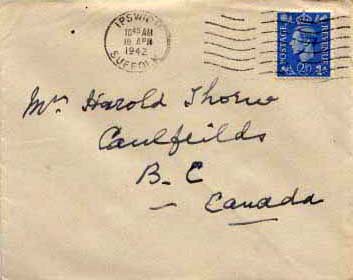 IPSWICH
10 45 AM
10 APR
1942
SUFFOLK
POSTAGE
REVENUE
2½D
Mr Harold Thorne
Caulfeilds
B-C
Canada